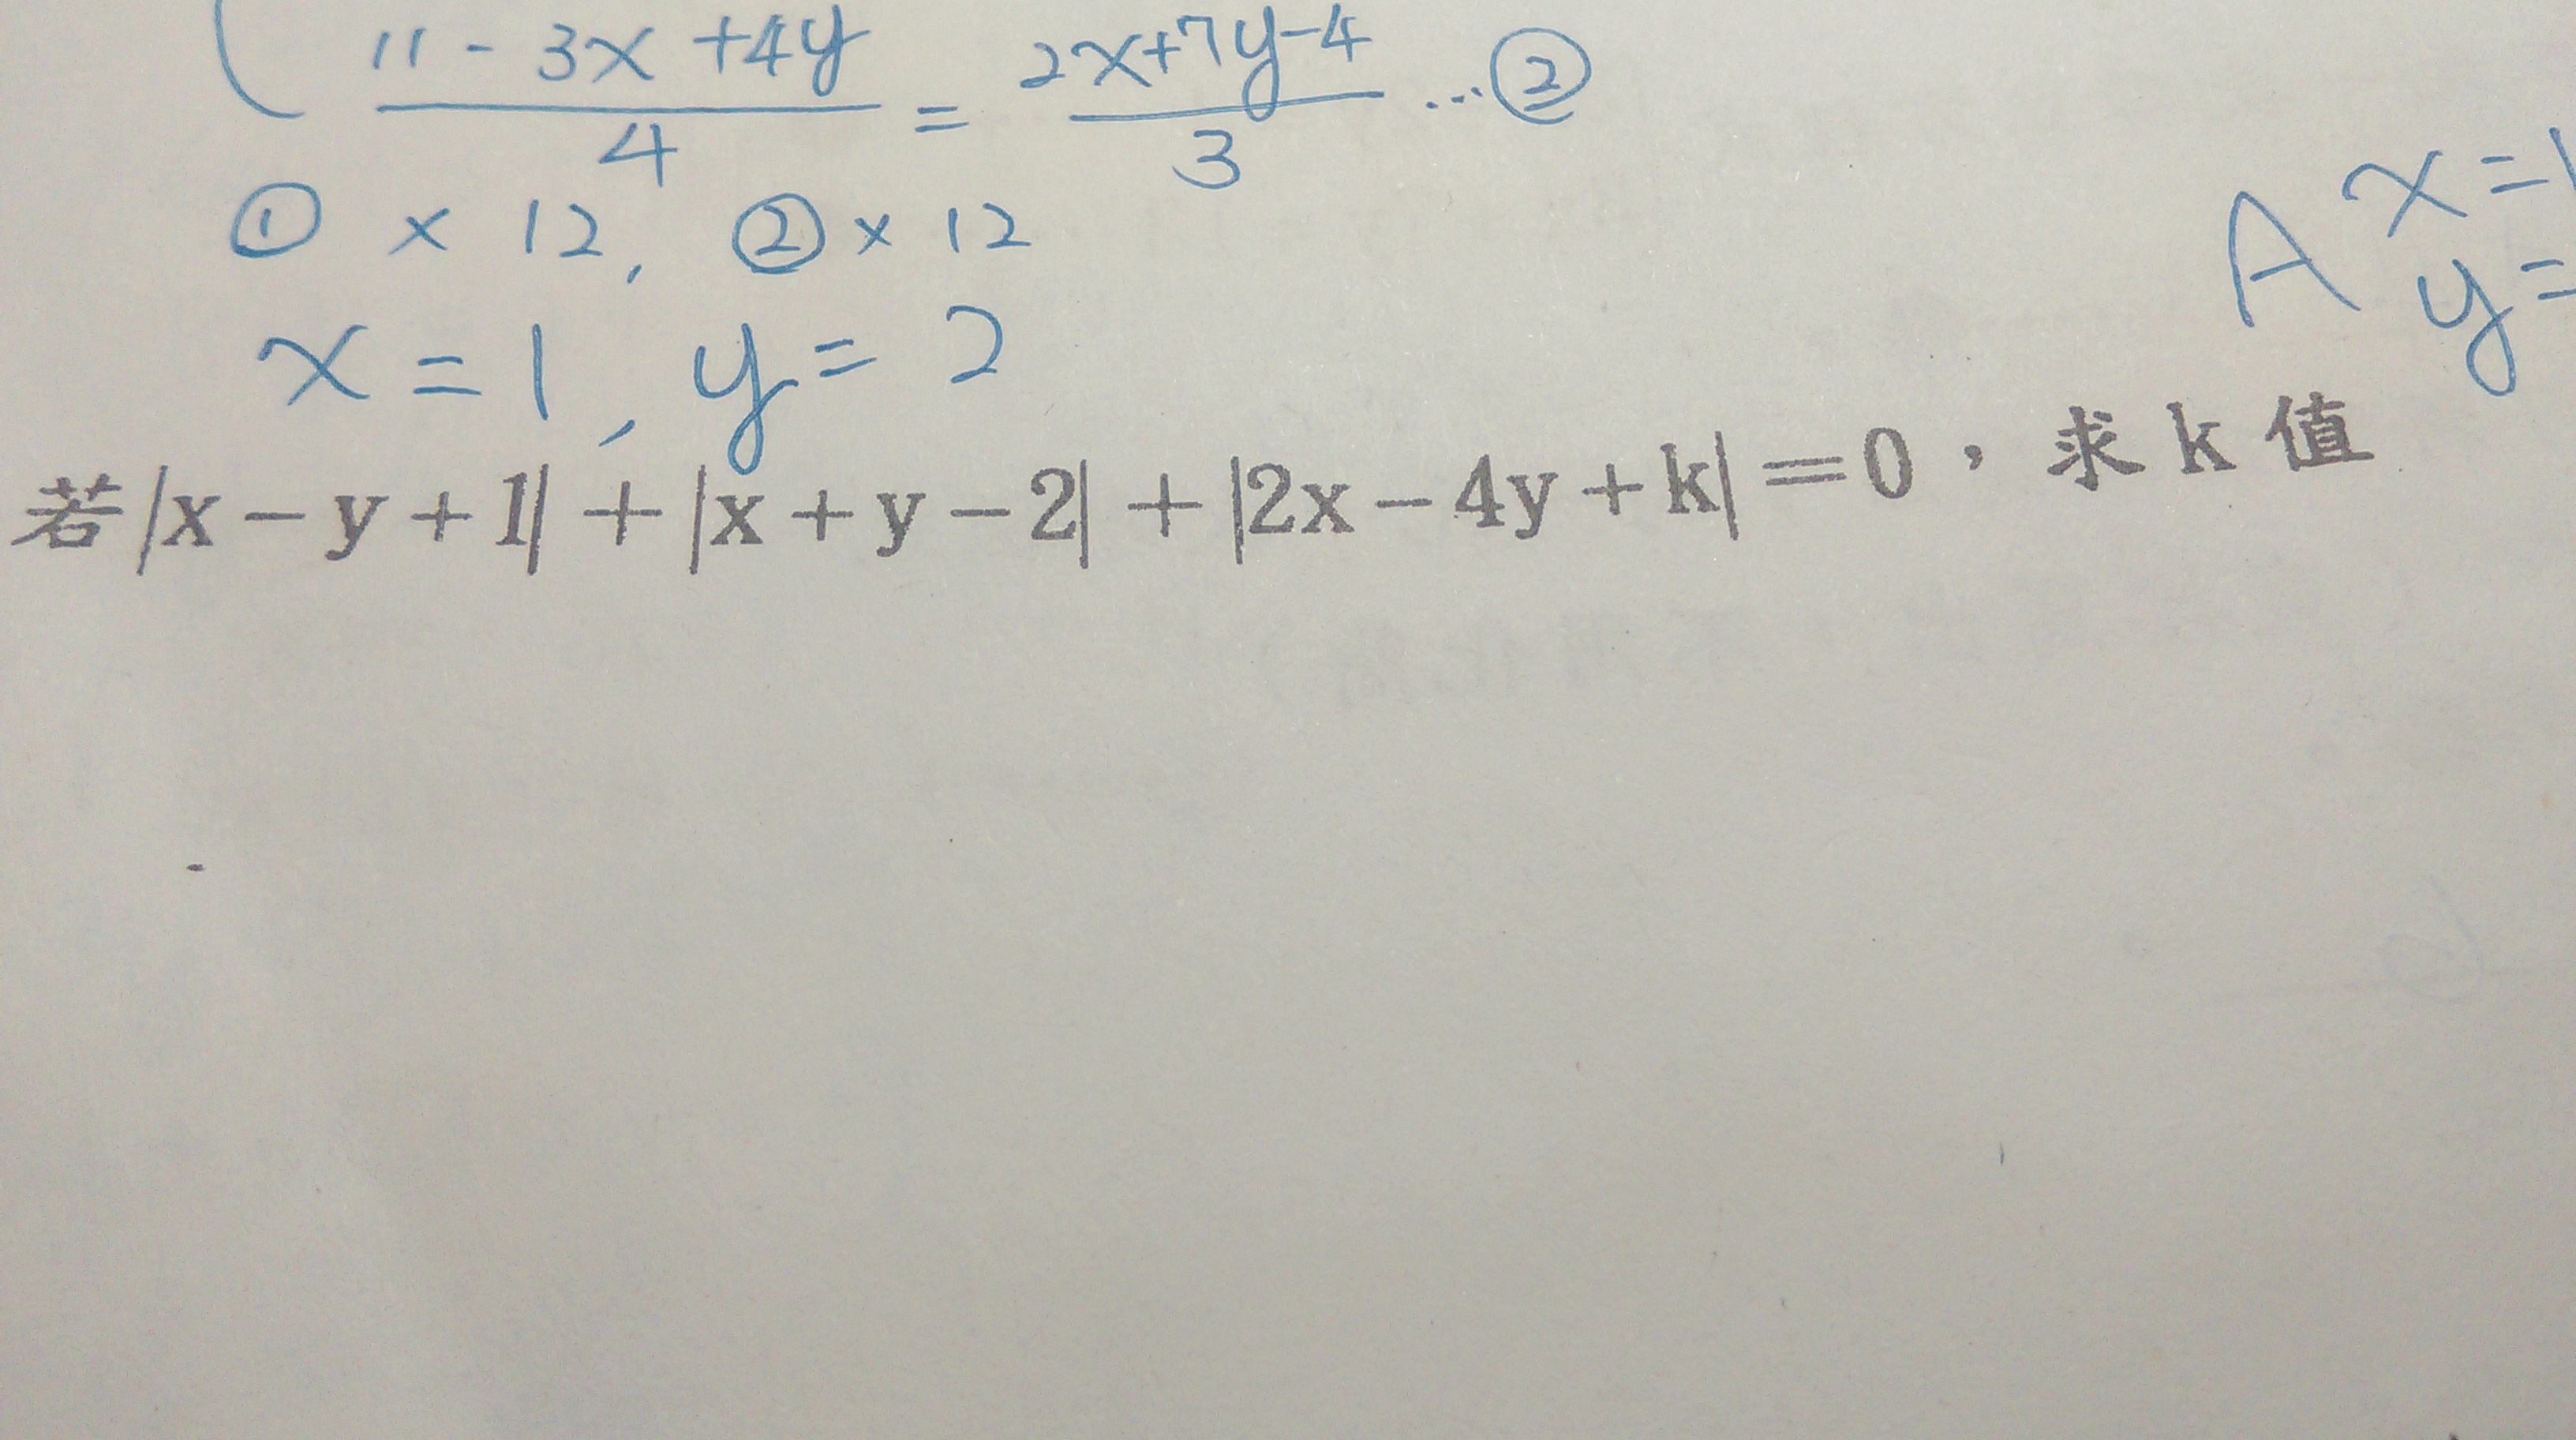 11 - 3x + 4y / 4 = 2x+7y-4 / 3 ...②
① × 12, ② × 12
A x=1
y=
x = 1, y = 2
若|x－y＋1|＋|x＋y－2|＋|2x－4y＋k|＝0，求k值